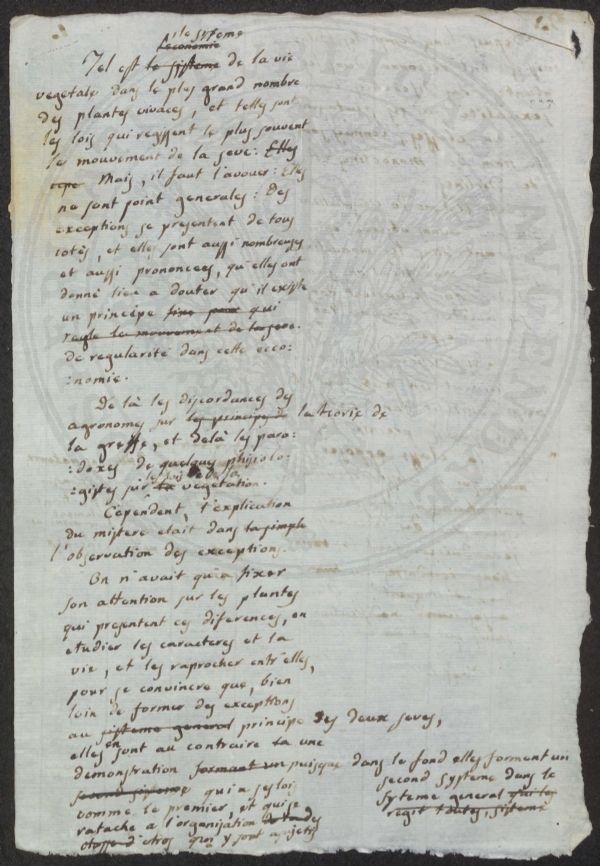 le systeme
l'economie
Tel est le systeme de la vie
vegetale dans le plus grand nombre
des plantes vivaces, et telles sont
les lois qui regissent le plus souvent
les mouvement de la seve: Elles
Mais, il faut l'avouer: Elles
ne sont point generales: Des
exceptions se presentent de tous
cotés, et elles sont aussi nombreuses
et aussi prononcées, qu'elles ont
donné lieu a douter qu'il existe
un principe fixe pour qui
regle le mouvement de la seve.
de regularité dans cette eco:
:nomie.
De là les discordances des
agronomes sur les principes de la teorie de
la greffe, et delà les para:
:doxes de quelques phisiolo:
:gistes sur la vegetation.
Cependent, l'explication
du mistere etait dans la simple
l'observation des exceptions.
On n'avait qu'a fixer
son attention sur les plantes
qui presentent ces diferences, en
etudier les caracteres et la
vie, et les raprocher entr'elles,
pour se convincre que, bien
loin de former des exceptions
au sisteme general principe des deux seves,
elles en sont au contraire la une
demonstration formant un puisque dans le fond elles forment un
second sisteme qui a ses lois
second systeme dans le
comme le premier, et qui se
systeme general qui les
ratache a l'organisation
regit toutes, sisteme
d'etres qui y sont assujetis